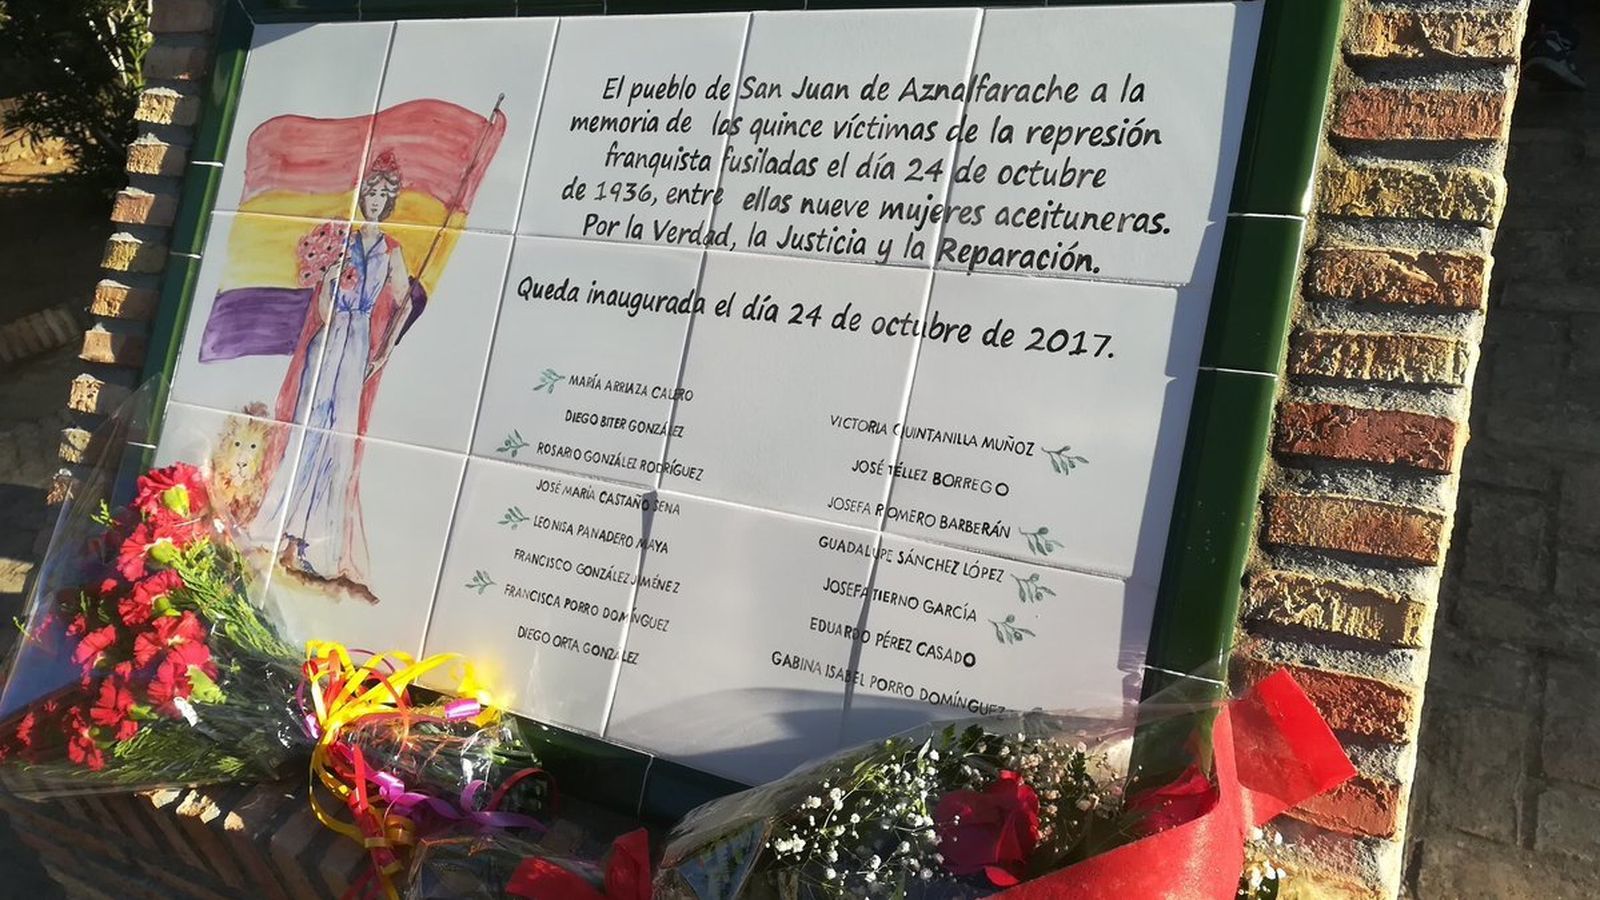 El pueblo de San Juan de Aznalfarache a la
memoria de las quince víctimas de la represión
franquista fusiladas el día 24 de octubre
de 1936, entre ellas nueve mujeres aceituneras.
Por la Verdad, la Justicia y la Reparación.
Queda inaugurada el día 24 de octubre de 2017.
MARÍA ARRIAZA CALERO
DIEGO BITER GONZÁLEZ
ROSARIO GONZÁLEZ RODRÍGUEZ
JOSÉ MARÍA CASTAÑO SENA
LEONISA PANADERO MAYA
FRANCISCO GONZÁLEZ JIMÉNEZ
FRANCISCA PORRO DOMÍNGUEZ
DIEGO ORTA GONZÁLEZ
VICTORIA QUINTANILLA MUÑOZ
JOSÉ TÉLLEZ BORREGO
JOSEFA ROMERO BARBERÁN
GUADALUPE SÁNCHEZ LÓPEZ
JOSEFA TIERNO GARCÍA
EDUARDO PÉREZ CASADO
GABINA ISABEL PORRO DOMÍNGUEZ